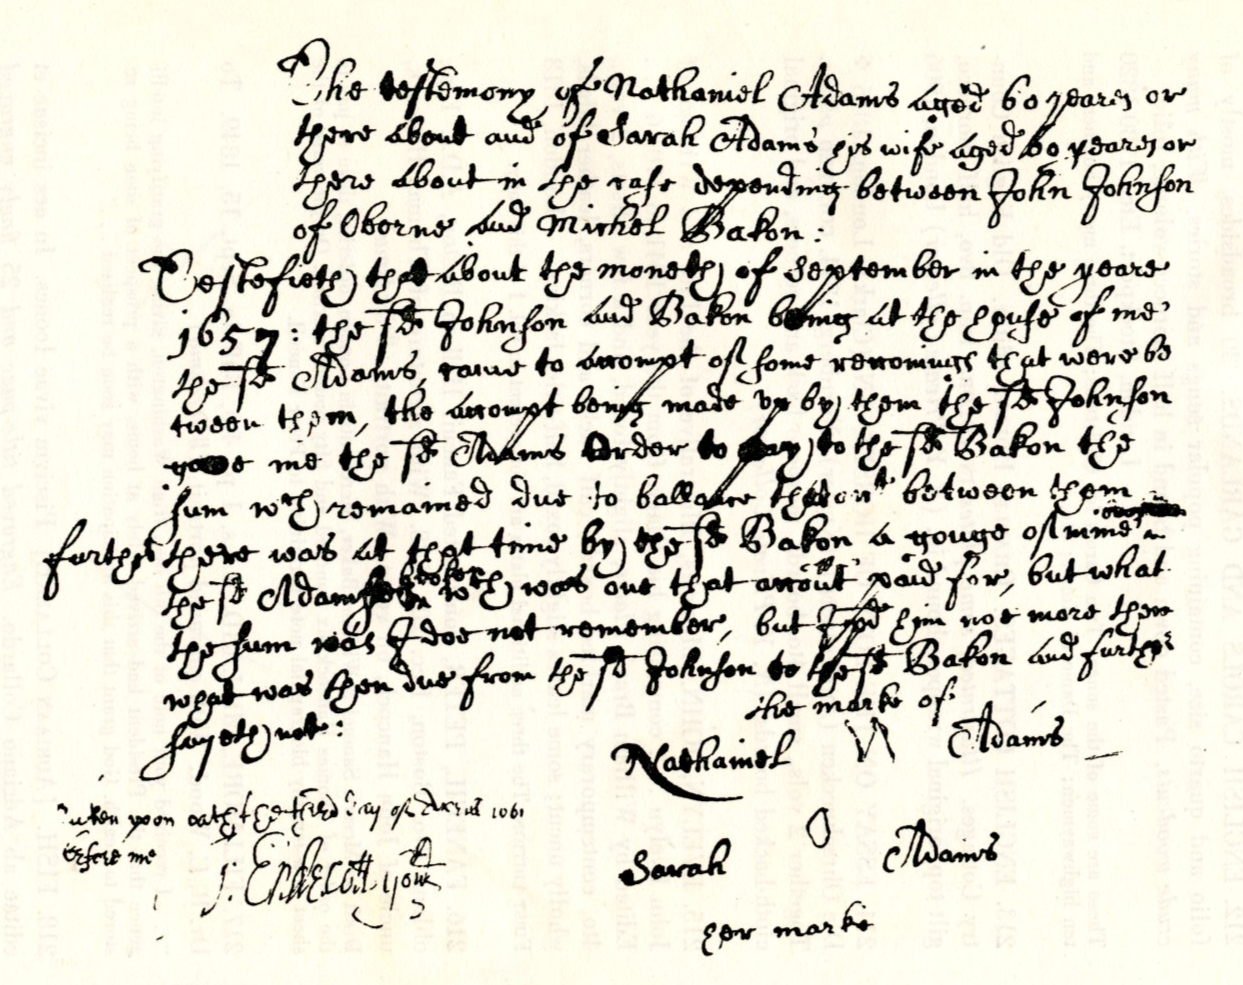 The testemony of Nathaniel Adams aged 60 yeares or
there about and of Sarah Adams hys wife aged 60 yeares or
there about in the case depending between John Johnson
of Oborne and Michel Bakon:
Testefieth that about the moneth of September in the yeare
1657: the sd Johnson and Bakon being at the house of me
the sd Adams, came to accompt of some reconings that were be
tween them, the accompt being made up by them the sd Johnson
gave me the sd Adams order to pay to the sd Bakon the
sum wch remained due to ballance that between them
further there was at that time by the sd Bakon a gouge of mine
the sd Adams wch was out that paid for, but what
the sum was I doe not remember, but I pd him noe more then
what was then due from the sd Johnson to the sd Bakon and further
sayeth not:
the marke of
Nathaniel Adams
taken upon oath the third day of 1661
before me
J: Endecott Govr
Sarah O Adams
her marke